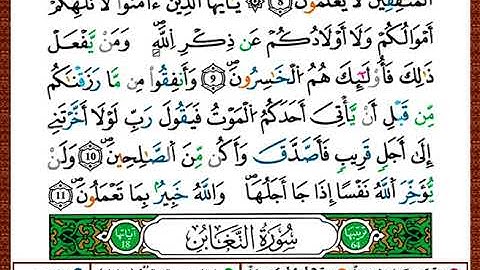 الْمُنٰفِقِيْنَ لَا يَعْلَمُوْنَ ۝٨ يٰٓاَيُّهَا الَّذِيْنَ اٰمَنُوْا لَا تُلْهِكُمْ
اَمْوَالُكُمْ وَلَآ اَوْلَادُكُمْ عَنْ ذِكْرِ اللّٰهِ ۚ وَمَنْ يَّفْعَلْ
ذٰلِكَ فَاُولٰٓئِكَ هُمُ الْخٰسِرُوْنَ ۝٩ وَاَنْفِقُوْا مِنْ مَّا رَزَقْنٰكُمْ
مِّنْ قَبْلِ اَنْ يَّأْتِيَ اَحَدَكُمُ الْمَوْتُ فَيَقُوْلَ رَبِّ لَوْلَآ اَخَّرْتَنِيْٓ
اِلٰٓى اَجَلٍ قَرِيْبٍ فَاَصَّدَّقَ وَاَكُنْ مِّنَ الصّٰلِحِيْنَ ۝١٠ وَلَنْ
يُّؤَخِّرَ اللّٰهُ نَفْسًا اِذَا جَآءَ اَجَلُهَا ۚ وَاللّٰهُ خَبِيْرٌۢ بِمَا تَعْمَلُوْنَ ۝١١
رتبتها 64 سُوْرَةُ التَّغَابُنِ اٰياتها 18